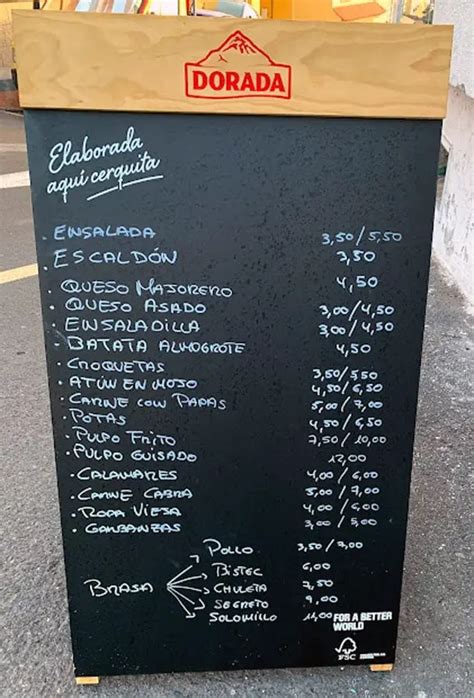 DORADA
Elaborada
aquí cerquita
. ENSALADA 3,50/5,50
. ESCALDÓN 3,50
. QUESO MAJORERO 4,50
. QUESO ASADO 3,00/4,50
. ENSALADILLA 3,00/4,50
. BATATA ALMOGROTE 4,50
. CROQUETAS 3,50/5,50
. ATÚN EN MOJO 4,50/6,50
. CARNE CON PAPAS 5,00/7,00
. POTAS 4,50/6,50
. PULPO FRITO 7,50/10,00
. PULPO GUISADO 12,00
. CALAMARES 4,00/6,00
. CARNE CABRA 5,00/7,00
. ROPA VIESA 4,00/6,00
. GARBANZAS 3,00/5,00
BRASA
POLLO 3,50/7,00
BISTEC 6,00
CHULETA 7,50
SECRETO 9,00
SOLOMILLO 11,00
FOR A BETTER
WORLD
FSC